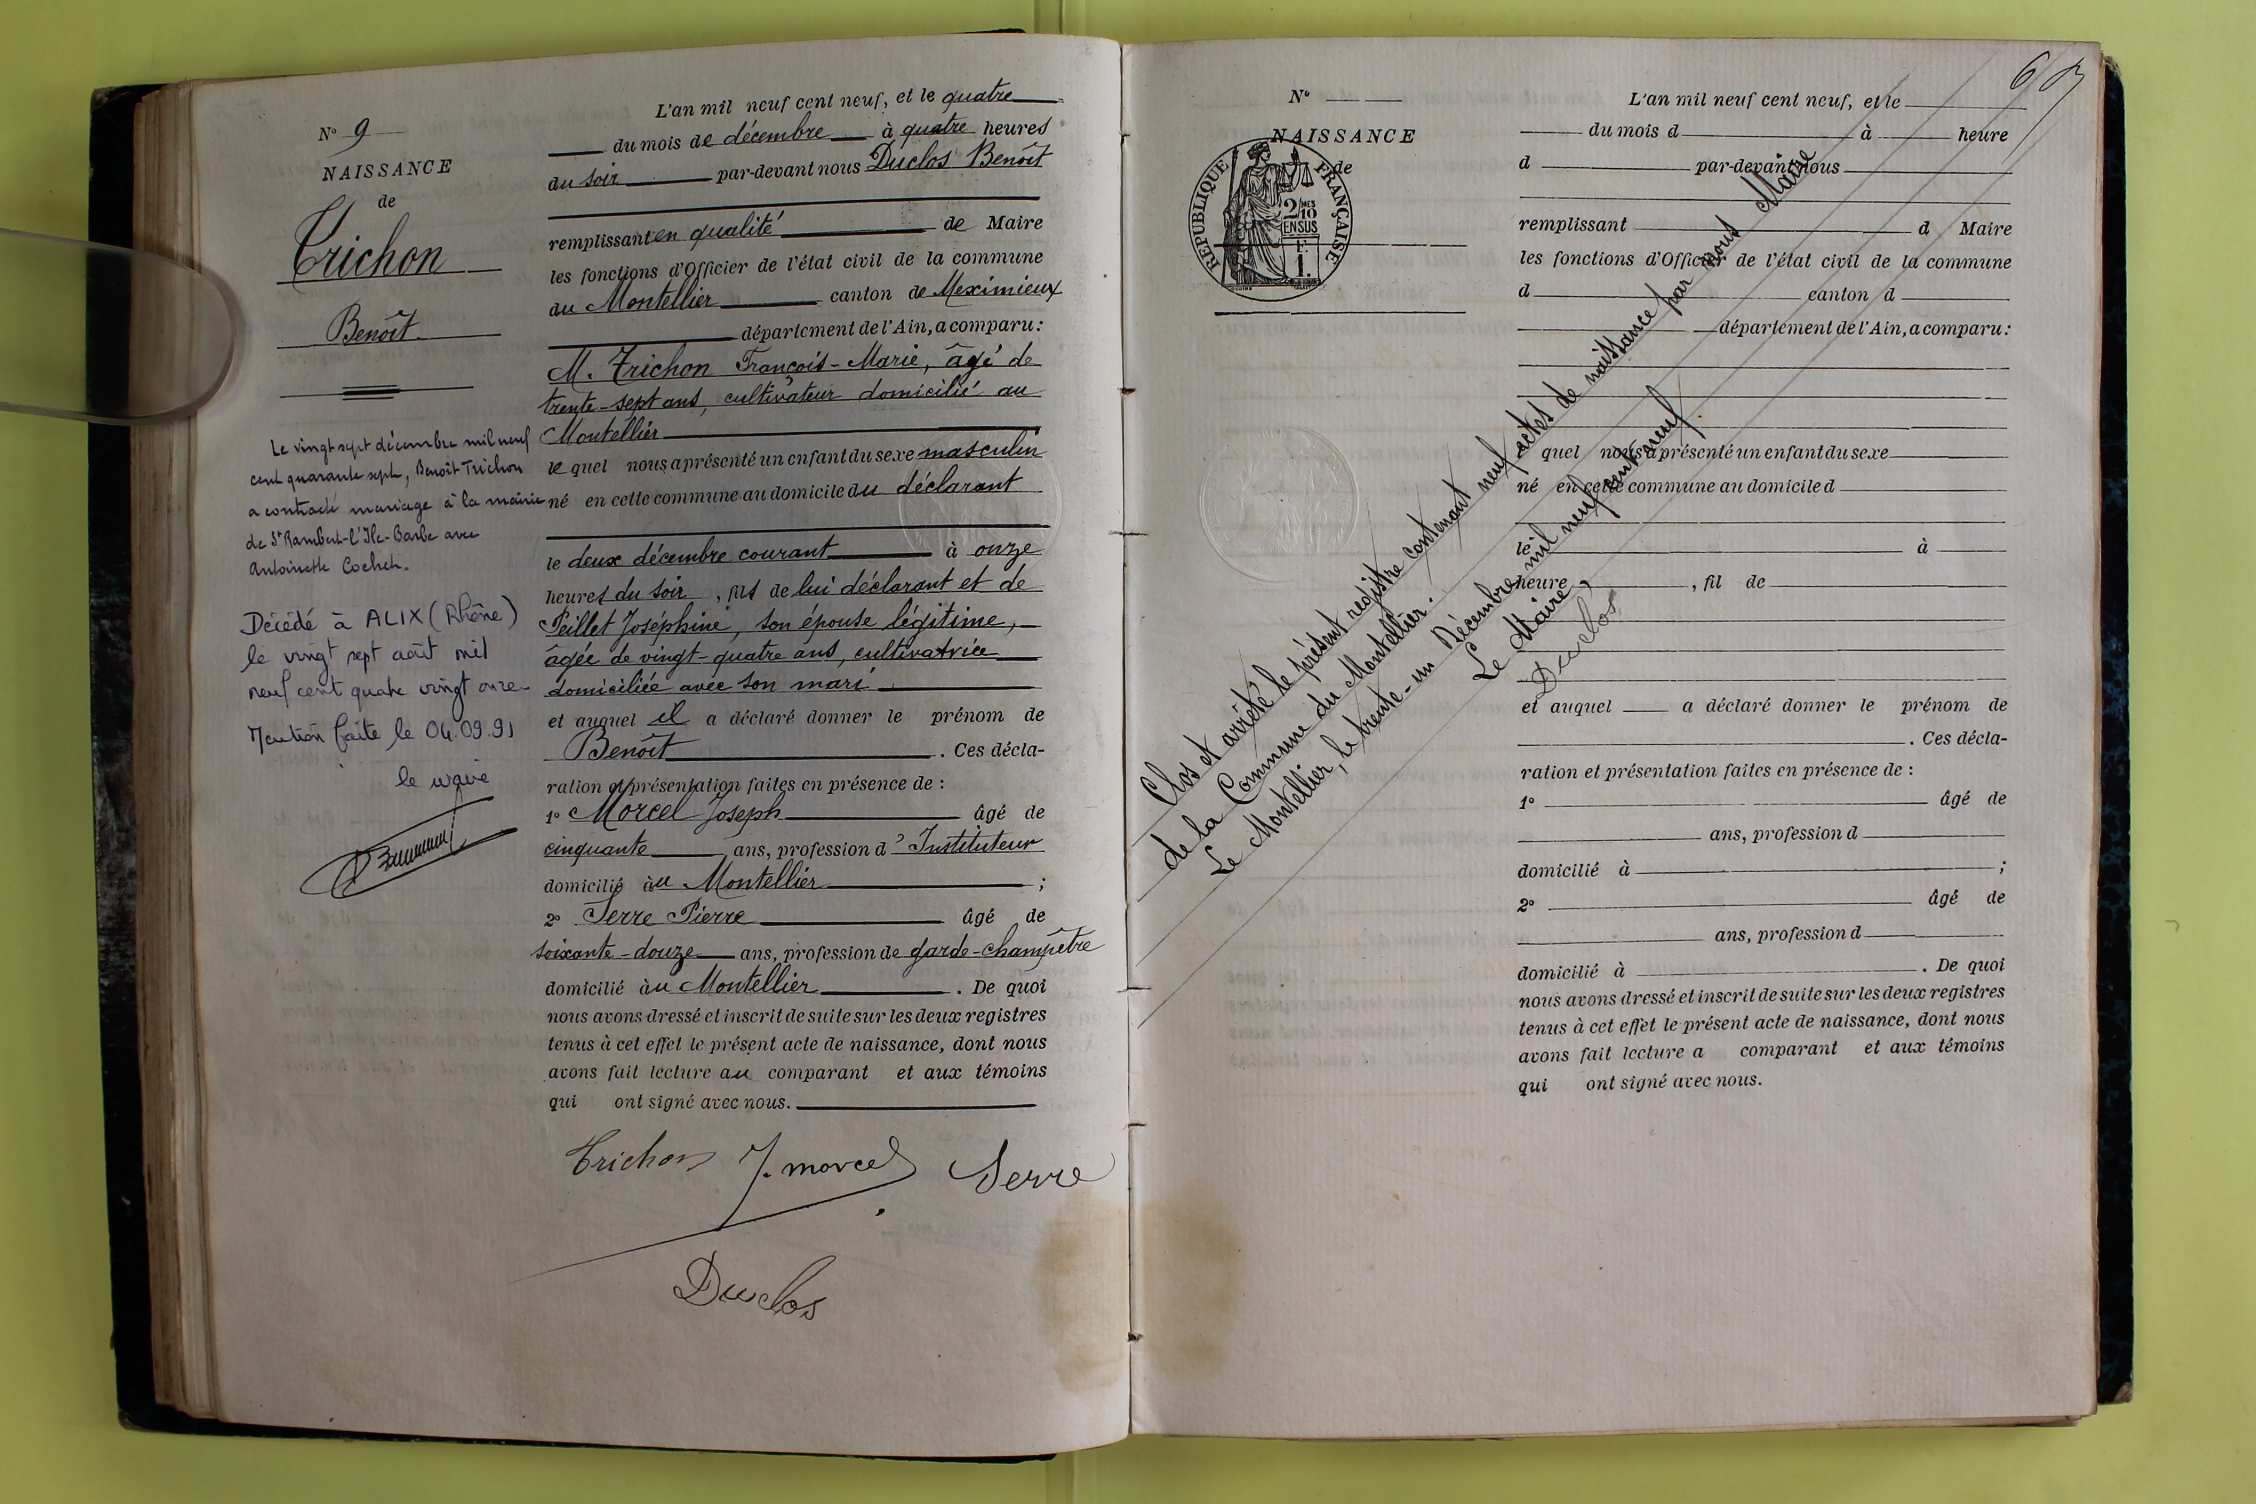 N° 9
NAISSANCE
de
Trichon
Benoît
Le vingt sept décembre mil neuf
cent quarante sept, Benoît Trichon
a contracté mariage à la mairie
de St Rambert-l'Ile-Barbe avec
Antoinette Cochet.
Décédé à ALIX (Rhône)
le vingt sept août mil
neuf cent quatre vingt onze
Mention faite le 04.09.91
le maire
L'an mil neuf cent neuf, et le quatre
du mois de décembre à quatre heures
du soir par-devant nous Duclos Benoît
remplissant en qualité de Maire
les fonctions d'Officier de l'état civil de la commune
du Montellier canton de Meximieux
département de l'Ain, a comparu :
M. Trichon François-Marie, âgé de
trente-sept ans, cultivateur domicilié au
Montellier
le quel nous a présenté un enfant du sexe masculin
né en cette commune au domicile du déclarant
le deux décembre courant à onze
heures du soir, fils de lui déclarant et de
Peillet Joséphine, son épouse légitime,
âgée de vingt-quatre ans, cultivatrice
domiciliée avec son mari
et auquel il a déclaré donner le prénom de
Benoît . Ces décla-
ration et présentation faites en présence de :
1° Morcel Joseph âgé de
cinquante ans, profession d'Instituteur
domicilié au Montellier ;
2° Serre Pierre âgé de
soixante-douze ans, profession de garde-champêtre
domicilié au Montellier . De quoi
nous avons dressé et inscrit de suite sur les deux registres
tenus à cet effet le présent acte de naissance, dont nous
avons fait lecture au comparant et aux témoins
qui ont signé avec nous.
Trichon J. morcel Serre
Duclos
N°
NAISSANCE
de
REPUBLIQUE FRANÇAISE
2/10 MES
EN SUS
F.
1.
L'an mil neuf cent neuf, et le
du mois d à heure
d par-devant nous
remplissant d Maire
les fonctions d'Officier de l'état civil de la commune
d canton d
département de l'Ain, a comparu :
quel nous a présenté un enfant du sexe
né en cette commune au domicile d
le à
heure , fil de
et auquel a déclaré donner le prénom de
. Ces décla-
ration et présentation faites en présence de :
1° âgé de
ans, profession d
domicilié à ;
2° âgé de
ans, profession d
domicilié à . De quoi
nous avons dressé et inscrit de suite sur les deux registres
tenus à cet effet le présent acte de naissance, dont nous
avons fait lecture a comparant et aux témoins
qui ont signé avec nous.
Clos et arrêté le présent registre contenant neuf actes de naissance par nous Maire
de la Commune du Montellier.
Le Montellier, le trente-un Décembre mil neuf cent neuf.
Le Maire,
Duclos